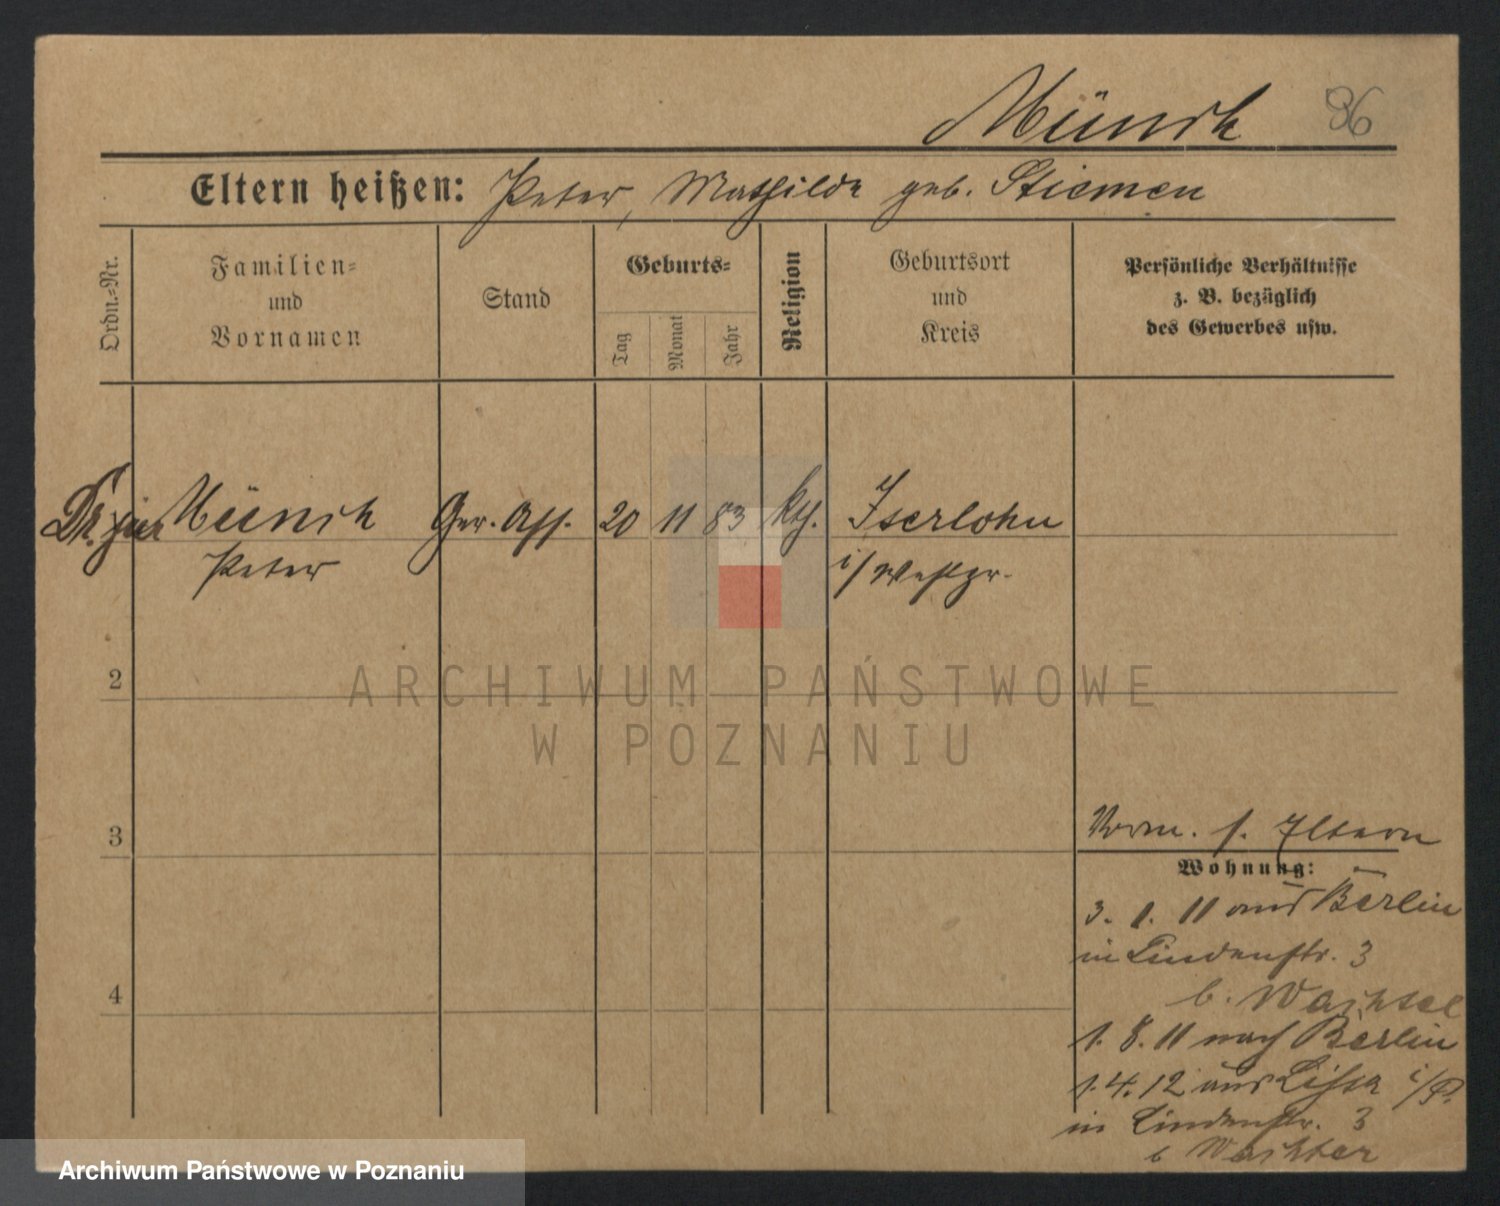 Münch 96
Eltern heißen: Peter, Mathilde geb. Stiemen
Ordn.=Nr.
Familien=
und
Vornamen
Stand
Geburts=
Tag
Monat
Jahr
Religion
Geburtsort
und
Kreis
Persönliche Verhältnisse
z. B. bezüglich
des Gewerbes usw.
Dr. jur. Münch Ger. Ass. 20 11 83 kth. Iserlohn
Peter i/Westf.
2
3
4
Verm. s. Eltern
Wohnung:
3. 1. 11 aus Berlin
in Lindenstr. 3
b.
1. 8. 11 nach Berlin
1. 4. 12 aus Lissa i/P.
in Lindenstr. 3
b
ARCHIWUM PAŃSTWOWE
W POZNANIU
Archiwum Państwowe w Poznaniu